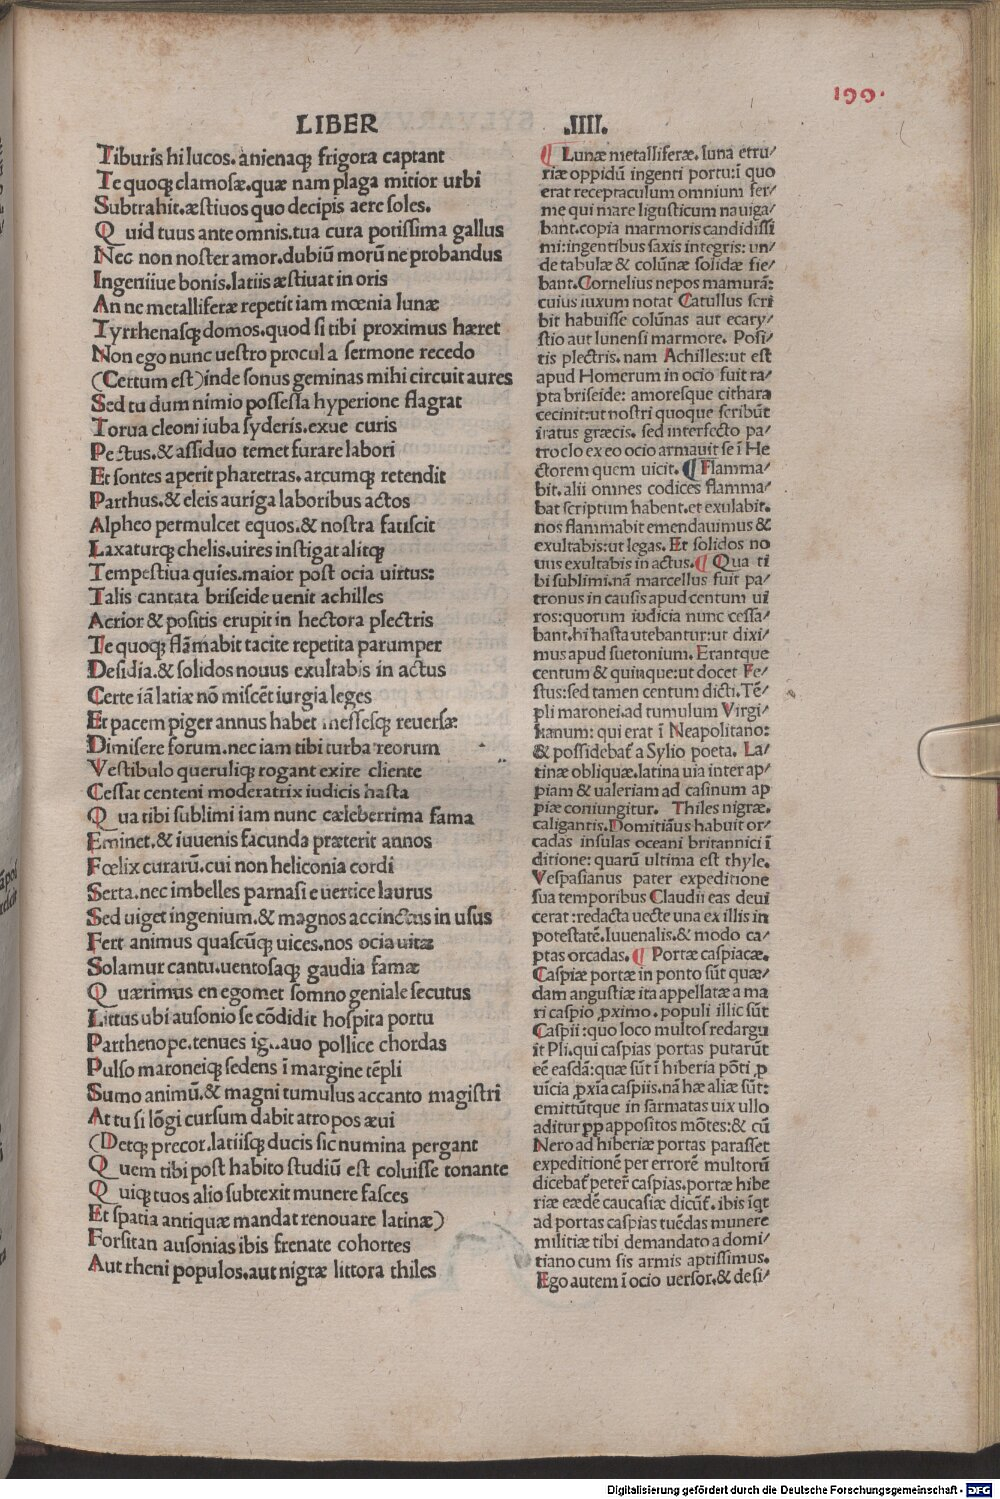 199.
LIBER .IIII.
Tiburis hi lucos. anienaqꝫ frigora captant
Te quoqꝫ clamosæ. quæ nam plaga mitior urbi
Subtrahit. æstiuos quo decipis aere soles.
Quid tuus ante omnis. tua cura potissima gallus
Nec non noster amor. dubiū morū ne probandus
Ingeniiue bonis. latiis æstiuat in oris
An ne metalliferæ repetit iam mœnia lunæ
Tyrrhenasqꝫ domos. quod si tibi proximus hæret
Non ego nunc uestro procul a sermone recedo
(Certum est) inde sonus geminas mihi circuit aures
Sed tu dum nimio possessa hyperione flagrat
Torua cleoni iuba syderis. exue curis
Pectus. & assiduo temet furare labori
Et sontes aperit pharetras. arcumqꝫ retendit
Parthus. & eleis auriga laboribus actos
Alpheo permulcet equos. & nostra fatiscit
Laxaturqꝫ chelis. uires instigat alitqꝫ
Tempestiua quies. maior post ocia uirtus:
Talis cantata briseide uenit achilles
Acrior & positis erupit in hectora plectris
Te quoqꝫ flāmabit tacite repetita parumper
Desidia. & solidos nouus exultabis in actus
Certe iā latiæ nō miscēt iurgia leges
Et pacem piger annus habet messesqꝫ reuersæ
Dimisere forum. nec iam tibi turba reorum
Vestibulo queruliqꝫ rogant exire cliente
Cessat centeni moderatrix iudicis hasta
Qua tibi sublimi iam nunc cæleberrima fama
Eminet. & iuuenis facunda præterit annos
Fœlix curarū. cui non heliconia cordi
Serta. nec imbelles parnasi e uertice laurus
Sed uiget ingenium. & magnos accinctus in usus
Fert animus quascūqꝫ uices. nos ocia uitæ
Solamur cantu. uentosaqꝫ gaudia famæ
Quærimus en egomet somno geniale secutus
Littus ubi ausonio se cōdidit hospita portu
Parthenope. tenues ig..auo pollice chordas
Pulso maroneiqꝫ sedens ī margine tēpli
Sumo animū. & magni tumulus accanto magistri
At tu si lōgi cursum dabit atropos æui
(Detqꝫ precor. latiisqꝫ ducis sic numina pergant
Quem tibi post habito studiū est coluisse tonante
Quiqꝫ tuos alio subtexit munere fasces
Et spatia antiquæ mandat renouare latinæ)
Forsitan ausonias ibis frenate cohortes
Aut rheni populos. aut nigræ littora thiles
¶ Lunæ metalliferæ. luna etru/
riæ oppidū ingenti portu: ī quo
erat receptaculum omnium fer/
me qui mare ligusticum nauiga/
bant. copia marmoris candidissi
mi: ingentibus saxis integris: un/
de tabulæ & colūnæ solidæ fie/
bant. Cornelius nepos mamurā:
cuius luxum notat Catullus scri
bit habuisse colūnas aut ecary/
stio aut lunensi marmore. Posi/
tis plectris. nam Achilles: ut est
apud Homerum in ocio fuit ra/
pta briseide: amoresque cithara
cecinit: ut nostri quoque scribūt
iratus græcis. sed interfecto pa/
troclo ex eo ocio armauit se ī He
ctorem quem uicit. ¶ Flamma/
bit. alii omnes codices flamma/
bat scriptum habent. et exulabit.
nos flammabit emendauimus &
exultabis: ut legas. Et solidos no
uus exultabis in actus. ¶ Qua ti
bi sublimi. nā marcellus fuit pa/
tronus in causis apud centum ui
ros: quorum iudicia nunc cessa/
bant. hi hasta utebantur: ut dixi/
mus apud suetonium. Erantque
centum & quinque: ut docet Fe/
stus: sed tamen centum dicti. Tē/
pli maronei. ad tumulum Virgi/
lianum: qui erat ī Neapolitano:
& possidebat̄ a Sylio poeta. La/
tinæ obliquæ. latina uia inter ap/
piam & ualeriam ad casinum ap
piæ coniungitur. Thiles nigræ.
caligantis. Domitiāus habuit or/
cadas insulas oceani britannici ī
ditione: quarū ultima est thyle.
Vespasianus pater expeditione
sua temporibus Claudii eas deui
cerat: redacta uecte una ex illis in
potestatē. Iuuenalis. & modo ca/
ptas orcadas. ¶ Portæ caspiacæ.
Caspiæ portæ in ponto sūt quæ/
dam angustiæ ita appellatæ a ma
ri caspio ꝓximo. populi illic sūt
Caspii: quo loco multos redargu
it Pli. qui caspias portas putarūt
eē easdā: quæ sūt ī hiberia pōti ꝓ
uīcia ꝓxīa caspiis. nā hæ aliæ sūt:
emittūtque in sarmatas uix ullo
aditur ꝓꝑ appositos mōtes: & cū
Nero ad hiberiæ portas parasset
expeditionē per errorē multorū
dicebat̄ peter̄ caspias. portæ hibe
riæ eædē caucasiæ dicūt̄. ibis īqt
ad portas caspias tuēdas munere
militiæ tibi demandato a domi/
tiano cum sis armis aptissimus.
Ego autem ī ocio uersor. & desi/
Digitalisierung gefördert durch die Deutsche Forschungsgemeinschaft - DFG